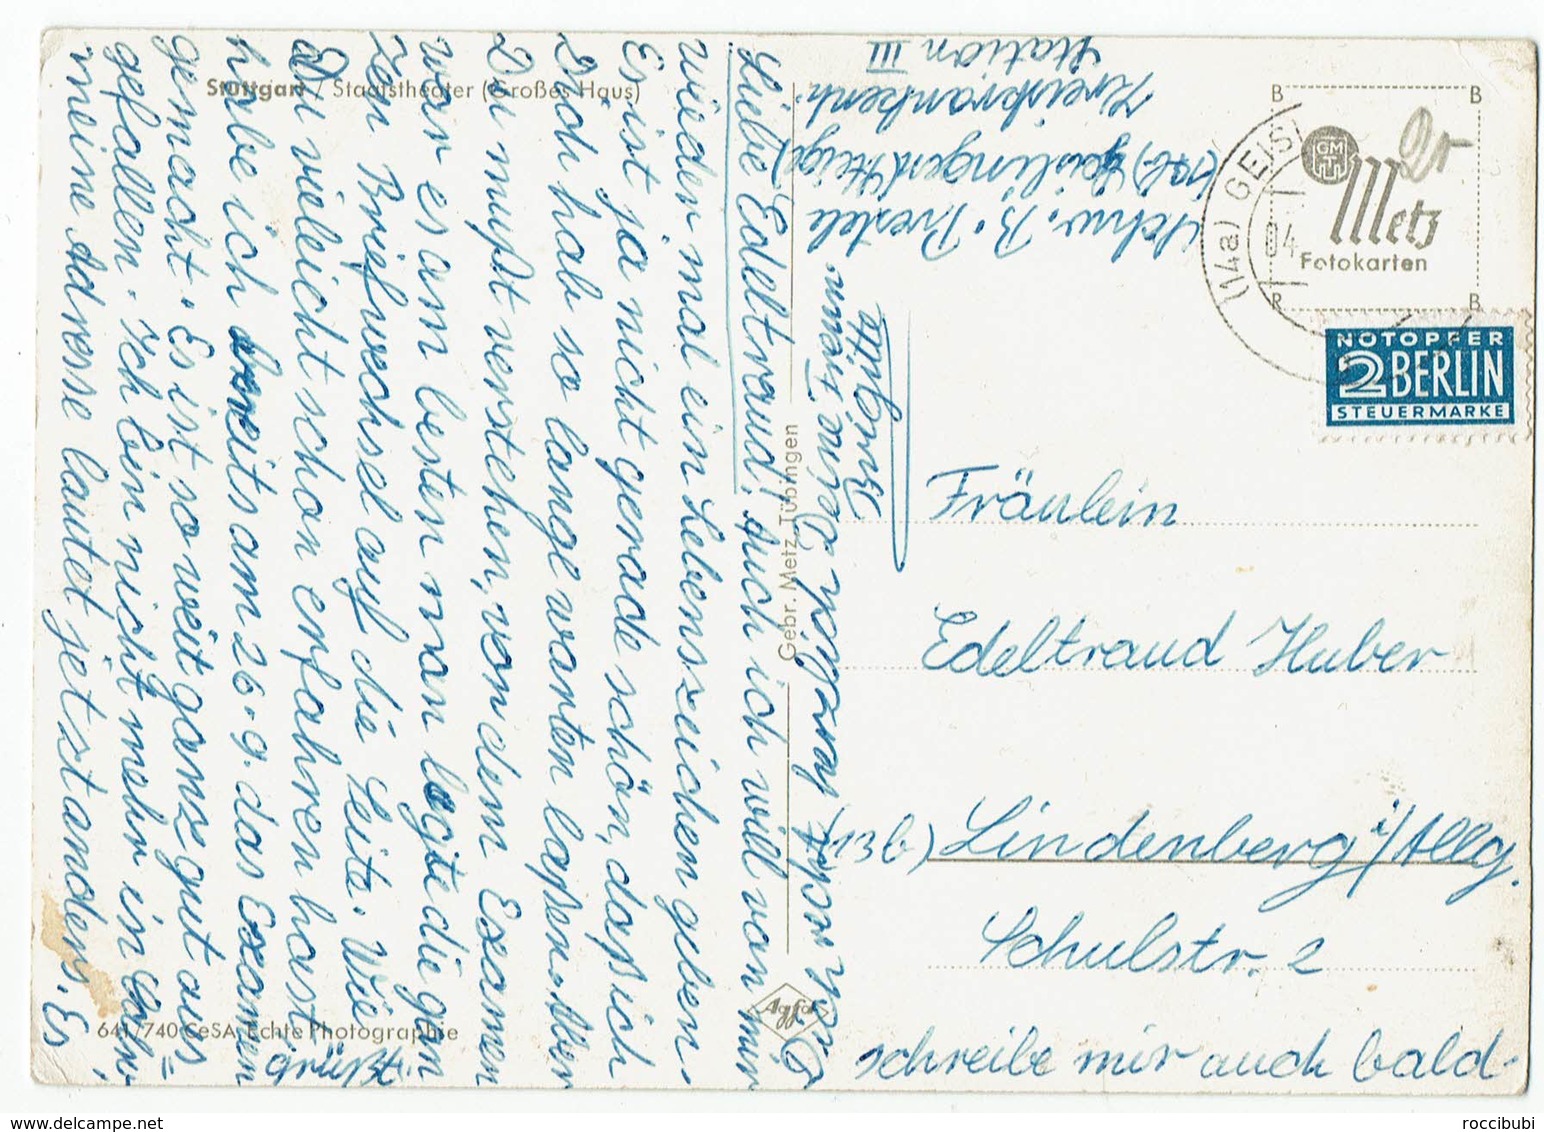 Stuttgart / Staatstheater (Großes Haus)
Schw. B. Prestele
(14a) Geislingen (Steige)
Kreiskrankenh.
Station III
Liebe Edeltraud! Auch ich will von mir
wieder mal ein Lebenszeichen geben.
Es ist ja nicht gerade schön, daß ich
Dich hab so lange warten laßen. Aber
Du mußt verstehen, von dem Examen
war es am besten man legte die gan
zen Briefwechsel auf die Seite. Wie
Du vieleicht schon erfahren hast
habe ich bereits am 26.9. das Examen
gemacht. Es ist so weit ganz gut aus=
gefallen. Ich bin nicht mehr in
meine Adresse lautet jetzt anders. Es
grüßt
Dich recht herzlich Deine
Brigitte
schreibe mir auch bald.
Fräulein
Edeltraud Huber
(13b) Lindenberg i/Allg.
Schulstr. 2
Gebr. Metz, Tübingen
Agfa
641/740 CeSA Echte Photographie
B B
R B
GMT
Metz
Fotokarten
2.-
(14a) GEISL
04
NOTOPFER
2 BERLIN
STEUERMARKE
www.delcampe.net
roccibubi